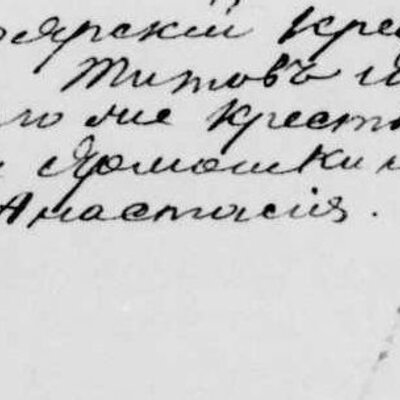 оярскій кре
Титовъ и
го же крестья
Ярмошкин
Анастасія.